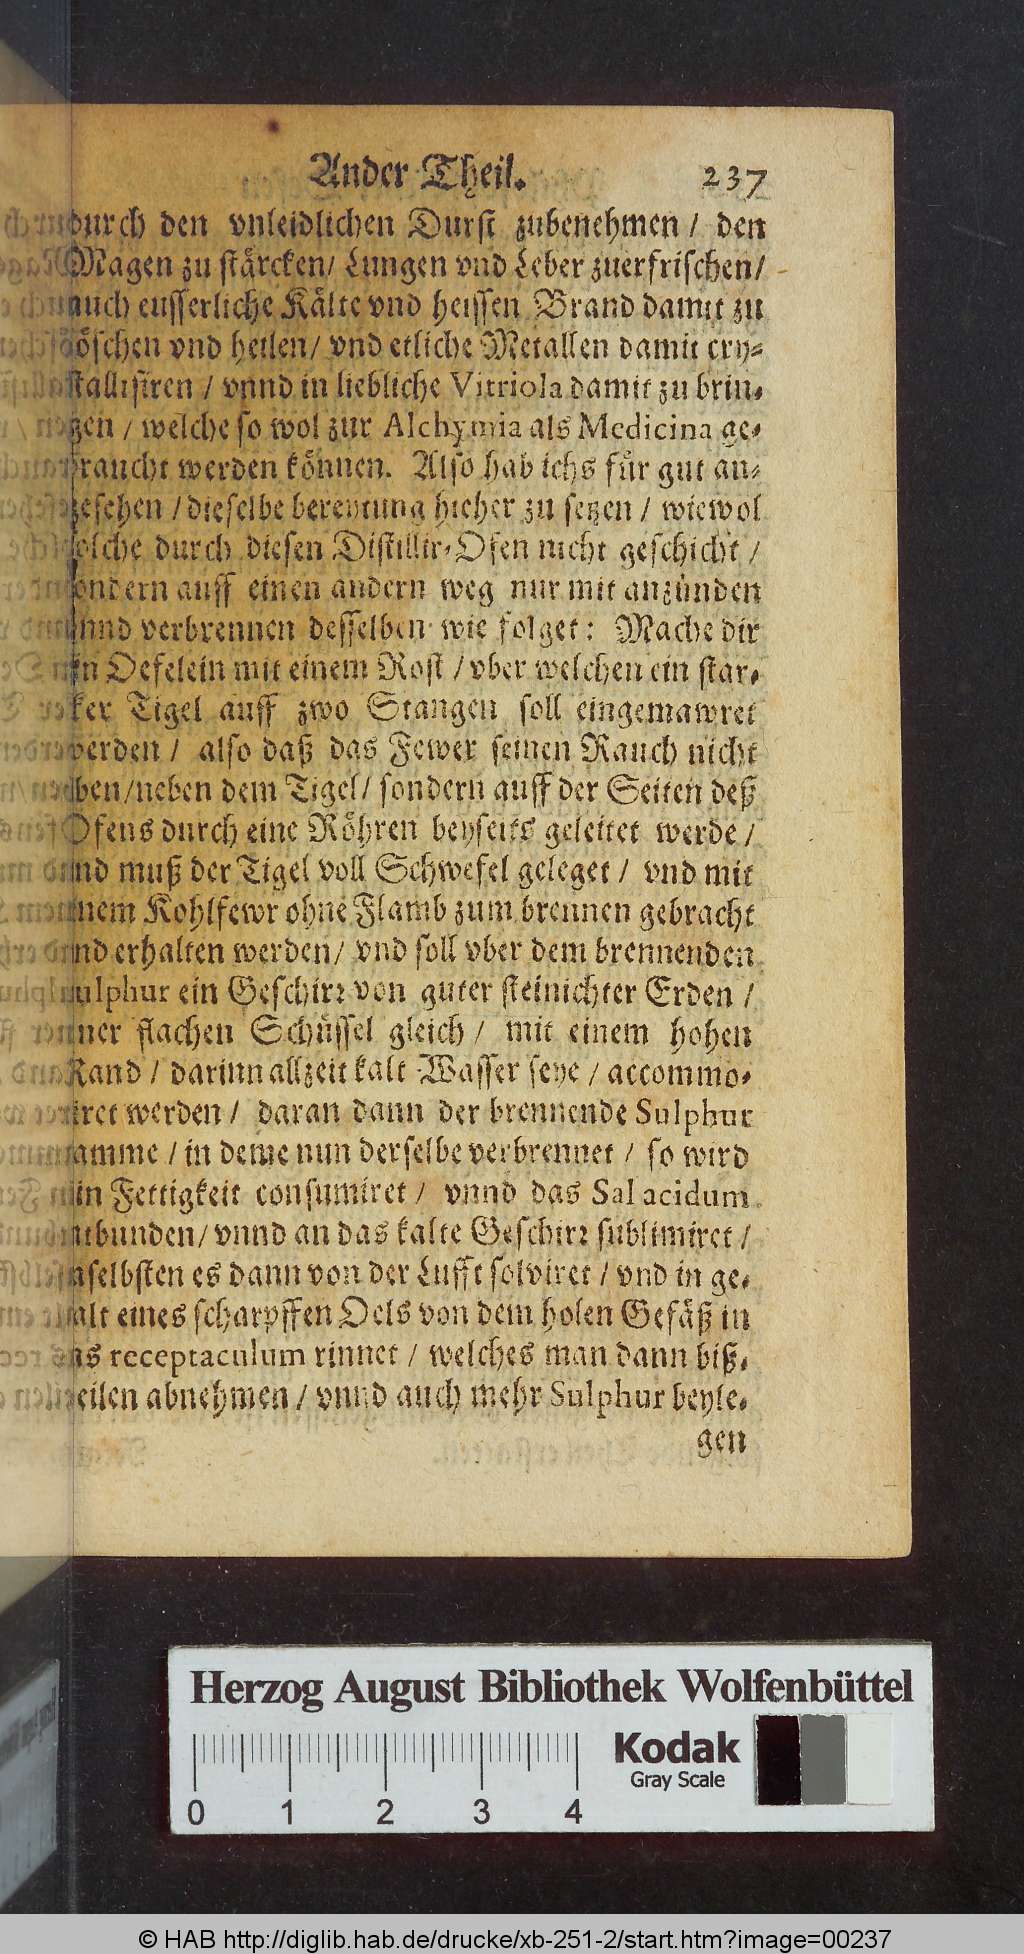 Ander Theil. 237
durch den vnleidlichen Durst zubenehmen / den
Magen zu stärcken/ Lungen vnd Leber zuerfrischen/
auch eusserliche Kälte vnd heissen Brand damit zu
öschen vnd heilen/ vnd etliche Metallen damit cry-
stallisiren / vnnd in liebliche Vitriola damit zu brin-
gen / welche so wol zur Alchymia als Medicina ge-
raucht werden können. Also hab ichs für gut an-
gesehen / dieselbe bereytung hieher zu setzen / wiewol
solche durch diesen Distillir-Ofen nicht geschicht /
sondern auff einen andern weg nur mit anzünden
vnnd verbrennen desselben wie folget: Mache dir
in Oefelein mit einem Rost / vber welchen ein star-
ker Tigel auff zwo Stangen soll eingemawret
werden / also daß das Fewer seinen Rauch nicht
ben/neben dem Tigel/ sondern auff der Seiten deß
Ofens durch eine Röhren beyseits geleitet werde /
vnd muß der Tigel voll Schwefel geleget / vnd mit
nem Kohlfewr ohne Flamb zum brennen gebracht
vnd erhalten werden/ vnd soll vber dem brennenden
ulphur ein Geschirr von guter steinichter Erden /
ner flachen Schüssel gleich / mit einem hohen
Rand / darinn allzeit kalt Wasser seye / accommo-
iret werden / daran dann der brennende Sulphur
amme / in deme nun derselbe verbrennet / so wird
in Fettigkeit consumiret / vnnd das Sal acidum
ntbunden/ vnnd an das kalte Geschirr sublimiret /
aselbsten es dann von der Lufft solviret / vnd in ge-
alt eines scharpffen Oels von dem holen Gefäß in
as receptaculum rinnet / welches man dann biß-
eilen abnehmen / vnnd auch mehr Sulphur beyle-
gen
Herzog August Bibliothek Wolfenbüttel
Kodak
Gray Scale
0 1 2 3 4
© HAB http://diglib.hab.de/drucke/xb-251-2/start.htm?image=00237